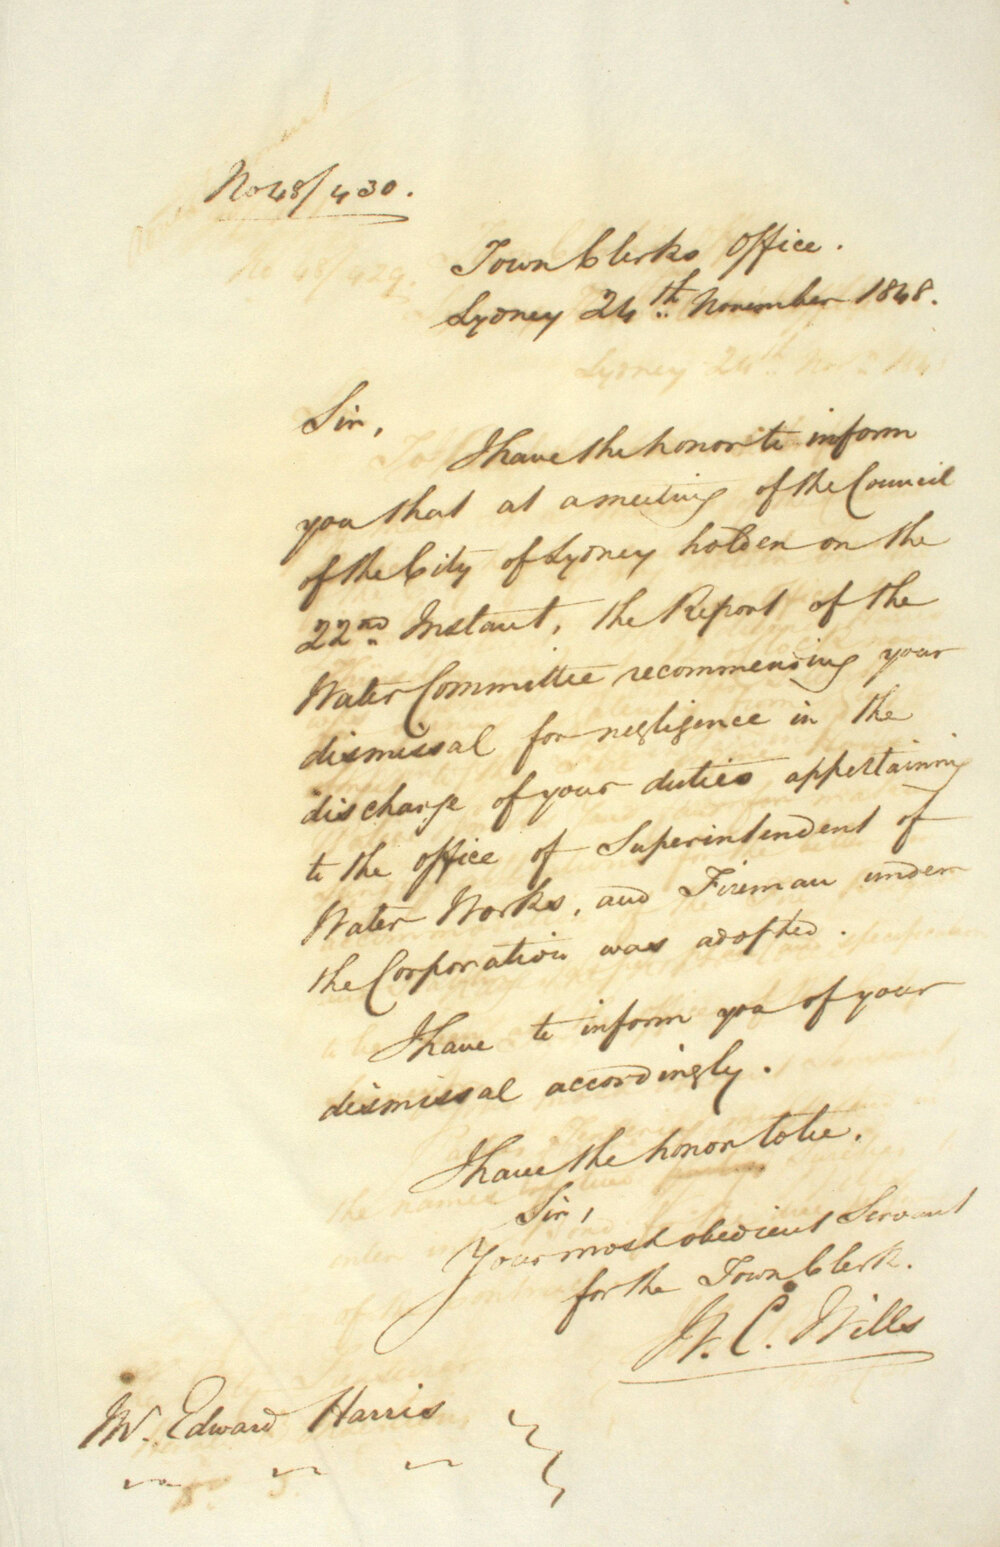 No 48/430.
Town Clerks Office.
Sydney 24th November 1848.
Sir,
I have the honor to inform
you that at a meeting of the Council
of the City of Sydney holden on the
22nd Instant, the Report of the
Water Committee recommending your
dismissal for negligence in the
discharge of your duties appertaining
to the office of Superintendent of
Water Works, and Fireman under
the Corporation was adopted.
I have to inform you of your
dismissal accordingly.
I have the honor to be.
Sir,
Your most obedient Servant
for the Town Clerk.
W. C. Wills
Mr. Edward Harris